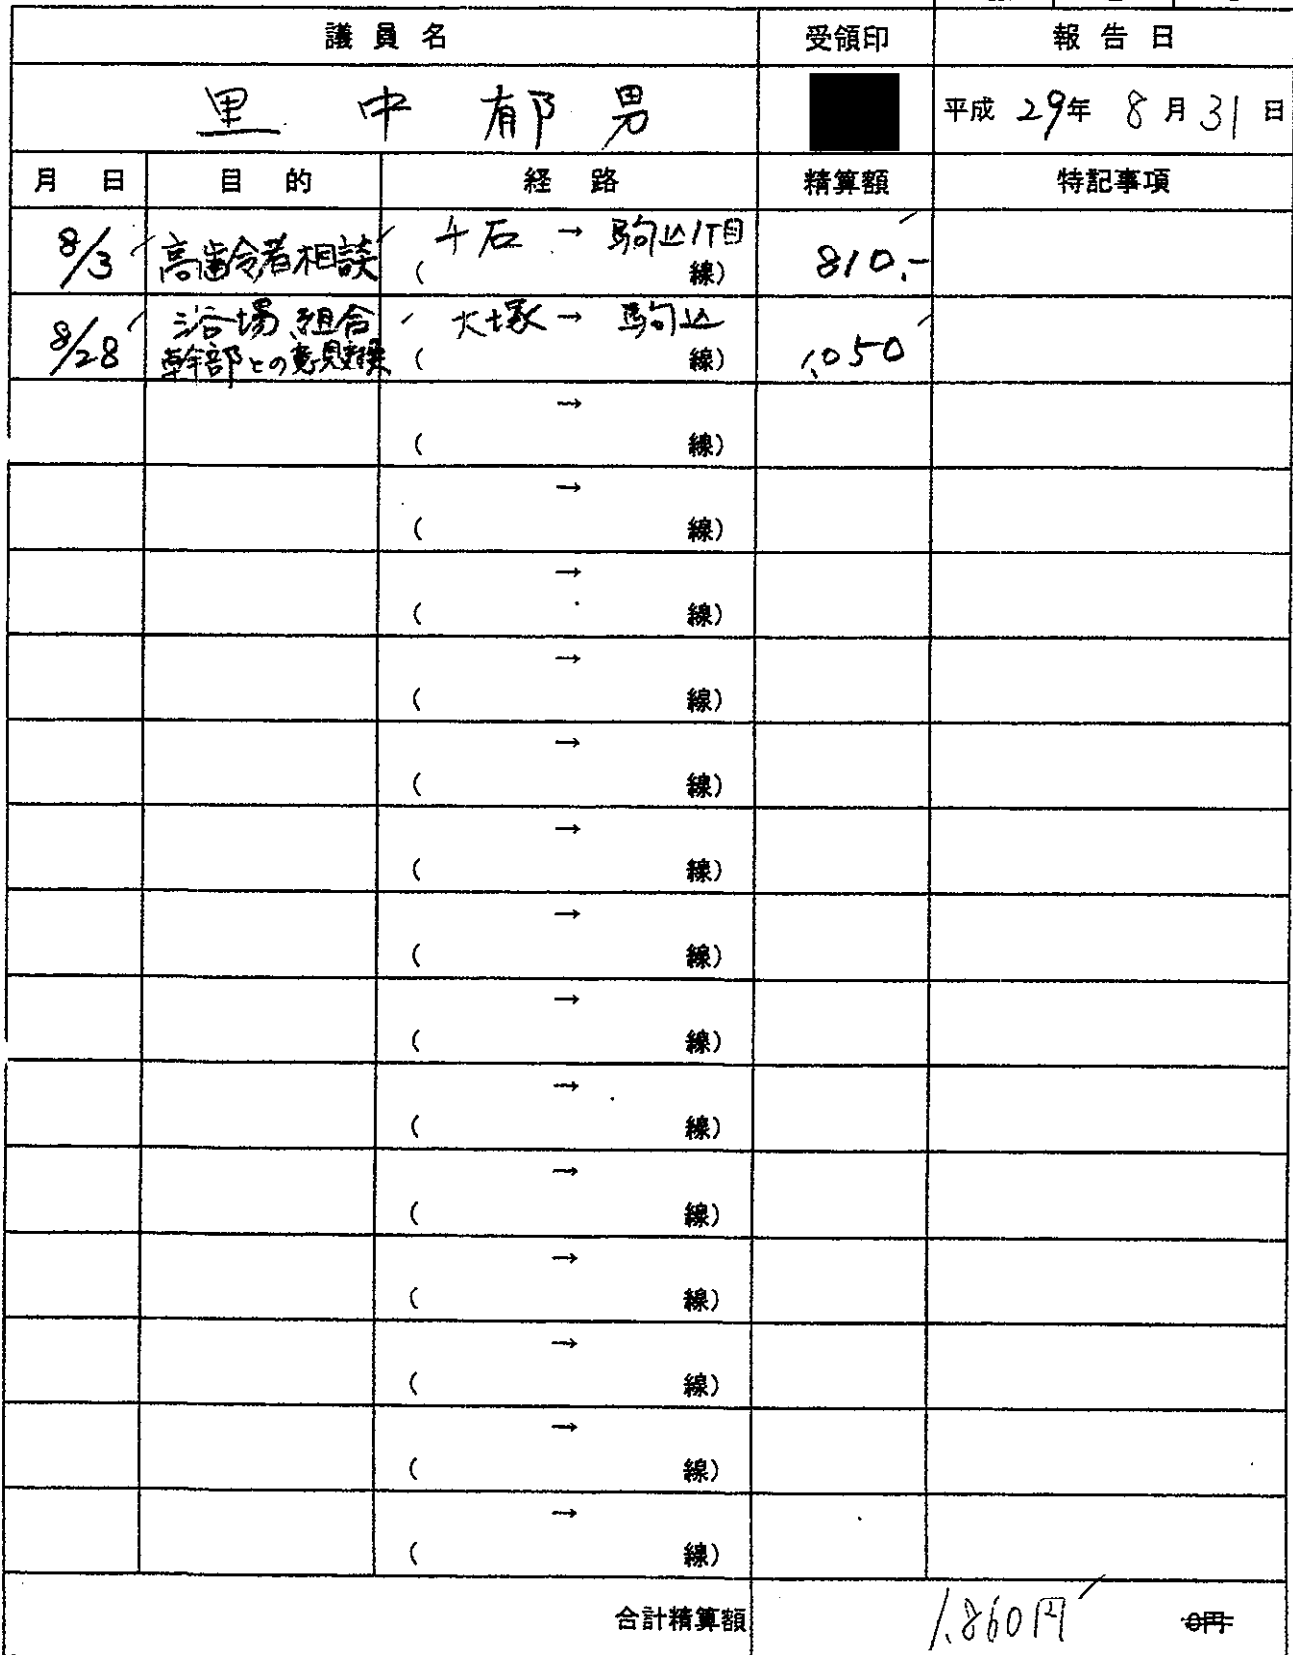 議員名 受領印 報告日
里中郁男 平成29年8月31日
月日 目的 経路 精算額 特記事項
8/3 高齢者相談 千石 → 駒込1丁目 810.-
( 線)
8/28 浴場組合 大塚 → 駒込 1,050
幹部との意見交換 ( 線)
→
( 線)
→
( 線)
→
( 線)
→
( 線)
→
( 線)
→
( 線)
→
( 線)
→
( 線)
→
( 線)
→
( 線)
→
( 線)
→
( 線)
→
( 線)
→
( 線)
合計精算額 1,860円 0円